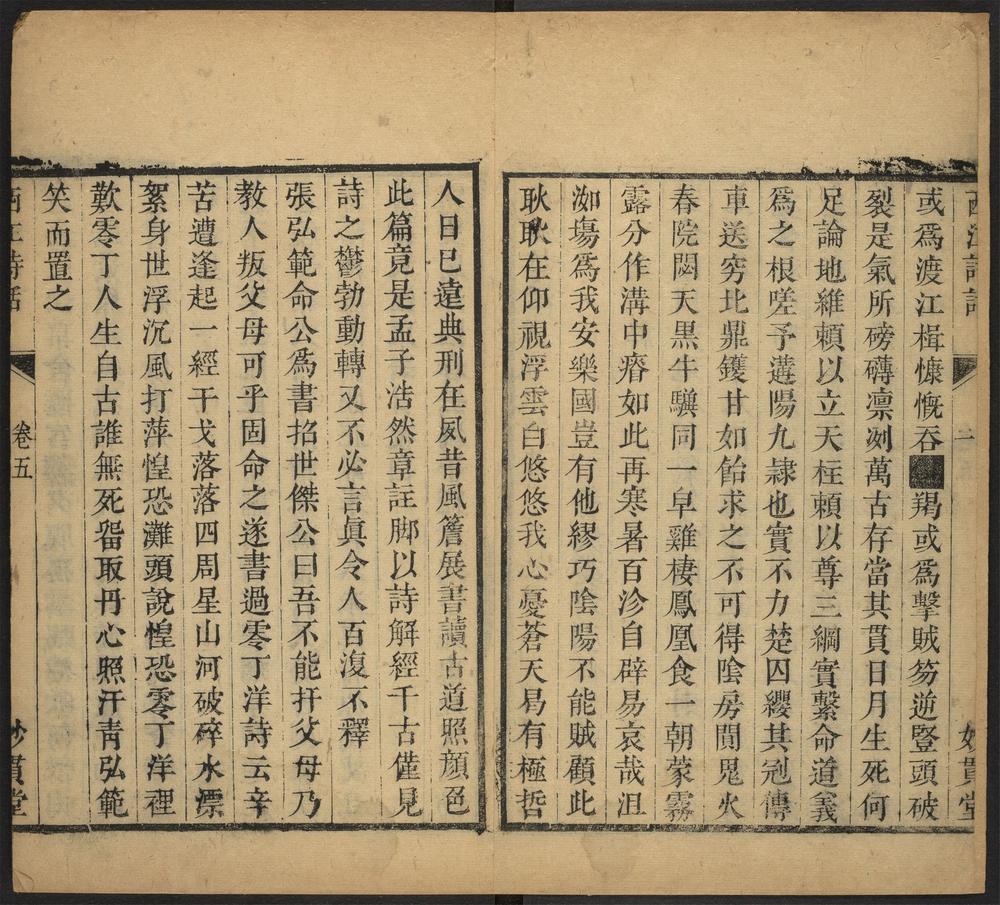 西江詩話 二 妙貫堂
或爲渡江楫慷慨吞■羯或爲擊賊笏逆豎頭破
裂是氣所磅礴凛冽萬古存當其貫日月生死何
足論地維賴以立天柱賴以尊三綱實繫命道義
爲之根嗟予遘陽九隷也實不力楚囚纓其冠傳
車送窮北鼎鑊甘如飴求之不可得陰房閴鬼火
春院閟天黑牛驥同一皁雞棲鳳凰食一朝蒙霧
露分作溝中瘠如此再寒暑百沴自辟易哀哉沮
洳塲爲我安樂國豈有他繆巧陰陽不能賊顧此
耿耿在仰視浮雲白悠悠我心憂蒼天曷有極哲
人日已遠典刑在夙昔風簷展書讀古道照顔色
此篇竟是孟子浩然章註脚以詩解經千古僅見
詩之鬱勃動轉又不必言眞令人百復不釋
張弘範命公爲書招世傑公曰吾不能扞父母乃
教人叛父母可乎固命之遂書過零丁洋詩云辛
苦遭逢起一經干戈落落四周星山河破碎水漂
絮身世浮沉風打萍惶恐灘頭說惶恐零丁洋裡
歎零丁人生自古誰無死畱取丹心照汗靑弘範
笑而置之
西江詩話 卷五 妙貫堂